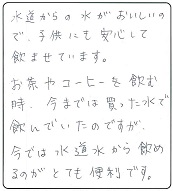 水道からの水がおいしいの
で、子供にも安心して
飲ませています。
お茶やコーヒーを飲む
時、今までは買った水で
飲んでいたのですが、
今では水道水から飲め
るのがとても便利です。